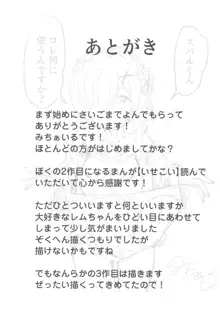 スバルくん
コレ何に
使うんですか？
あとがき
まず始めにさいごまでよんでもらって
ありがとうございます！
みちぁいるです！
ほとんどの方がはじめましてかな？
ぼくの2作目になるまんが【いせこい】読んで
いただいて心から感謝です！
ただひとついいますと何といいますか
大好きなレムちゃんをひどい目にあわせて
しまって少し気がまいりました
ぞくへん描くつもりでしたが
描けないかもですね
でもなんらかの3作目は描きます
ぜったい描くってきめてたので！